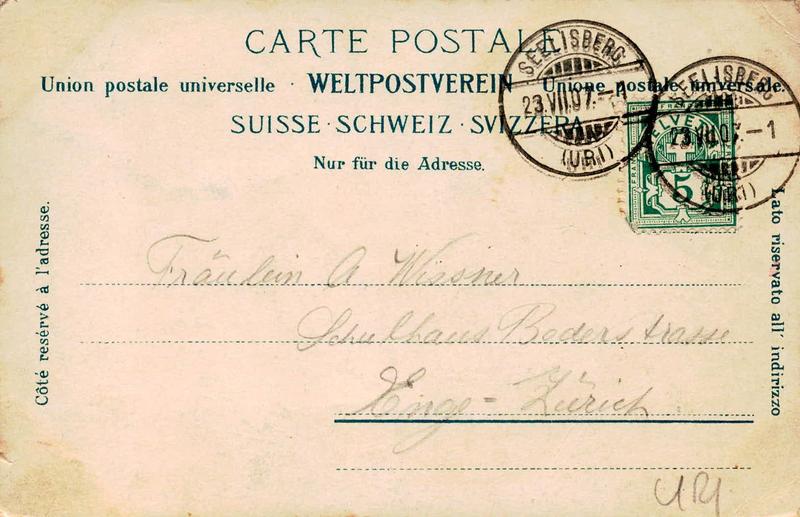 CARTE POSTALE
Union postale universelle · WELTPOSTVEREIN · Unione postale universale.
SUISSE · SCHWEIZ · SVIZZERA
Nur für die Adresse.
SEELISBERG
23.VII.07.–1
(URI)
SEELISBERG
23.VII.07.–1
(URI)
HELVETIA
5
Côté resérvé à l'adresse.
Lato riservato all' indirizzo
Fräulein A. Wissner
Schulhaus Bederstrasse
Enge-Zürich.
URI